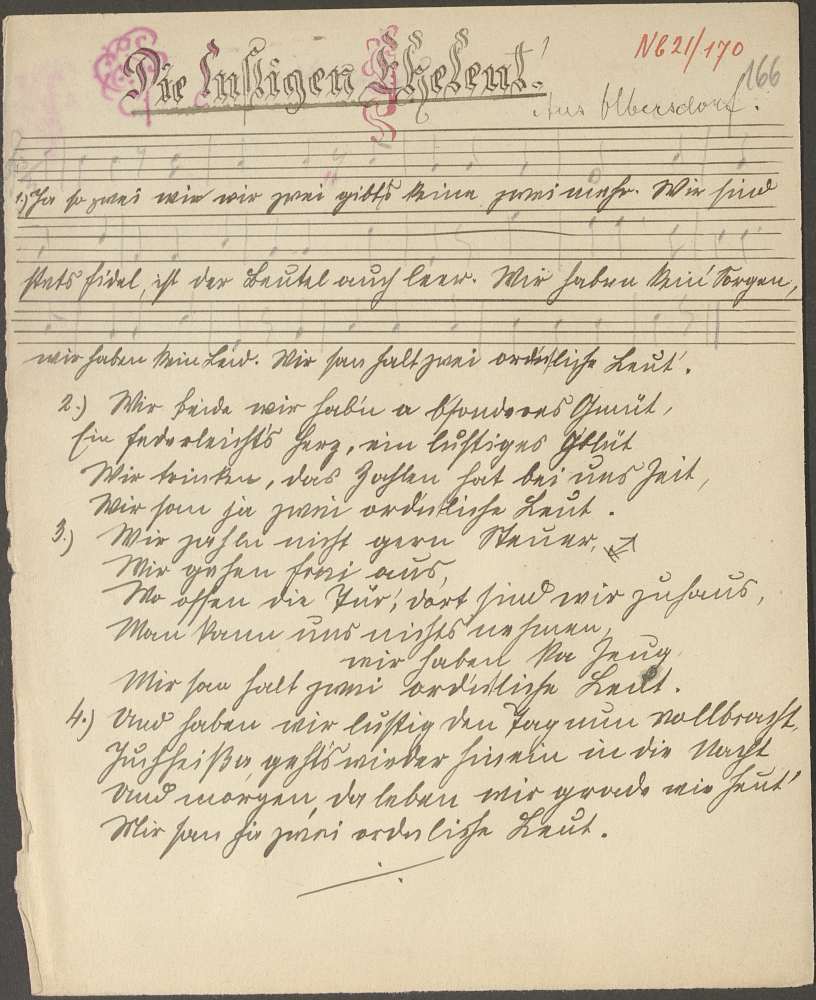 NB 21/170
166
Die lustigen Eheleut'.
Aus Olbersdorf.
1.) Ja so zwei wie wir zwei gibts keine zwei mehr. Wir sind
stets fidel, ist der Beutel auch leer. Wir haben kein' Sorgen,
wir haben kein Leid. Wir san halt zwei ordntliche Leut'.
2.) Wir beide wir hab'n a b'sonderes Gmüt,
Ein federleicht's Herz, ein lustiges G'blüt
Wir trinken, das Zahlen hat bei uns Zeit,
Wir san ja zwei ordntliche Leut.
3.) Wir zahln nicht gern Steuer,
Wir gehen frei aus,
Wo offen die Tür', dort sind wir zuhaus,
Man kann uns nichts nehmen,
wir haben ka Zeug
Mir san halt zwei ordntliche Leut.
4.) Und haben wir lustig den Tag nun vollbracht,
Juchheißa, geht's wieder hinein in die Nacht
Und morgen, da leben wir grade wie heut'
Mir san ja zwei ordnliche Leut.